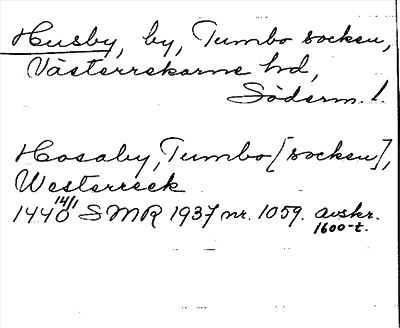 Husby, by, Tumbo socken,
Västerrekarne hd,
Söderm. l.
Hosaby, Tumbo [socken],
Westerreek
1440 14/1 SMR 1937 nr. 1059. avskr.
1600-t.